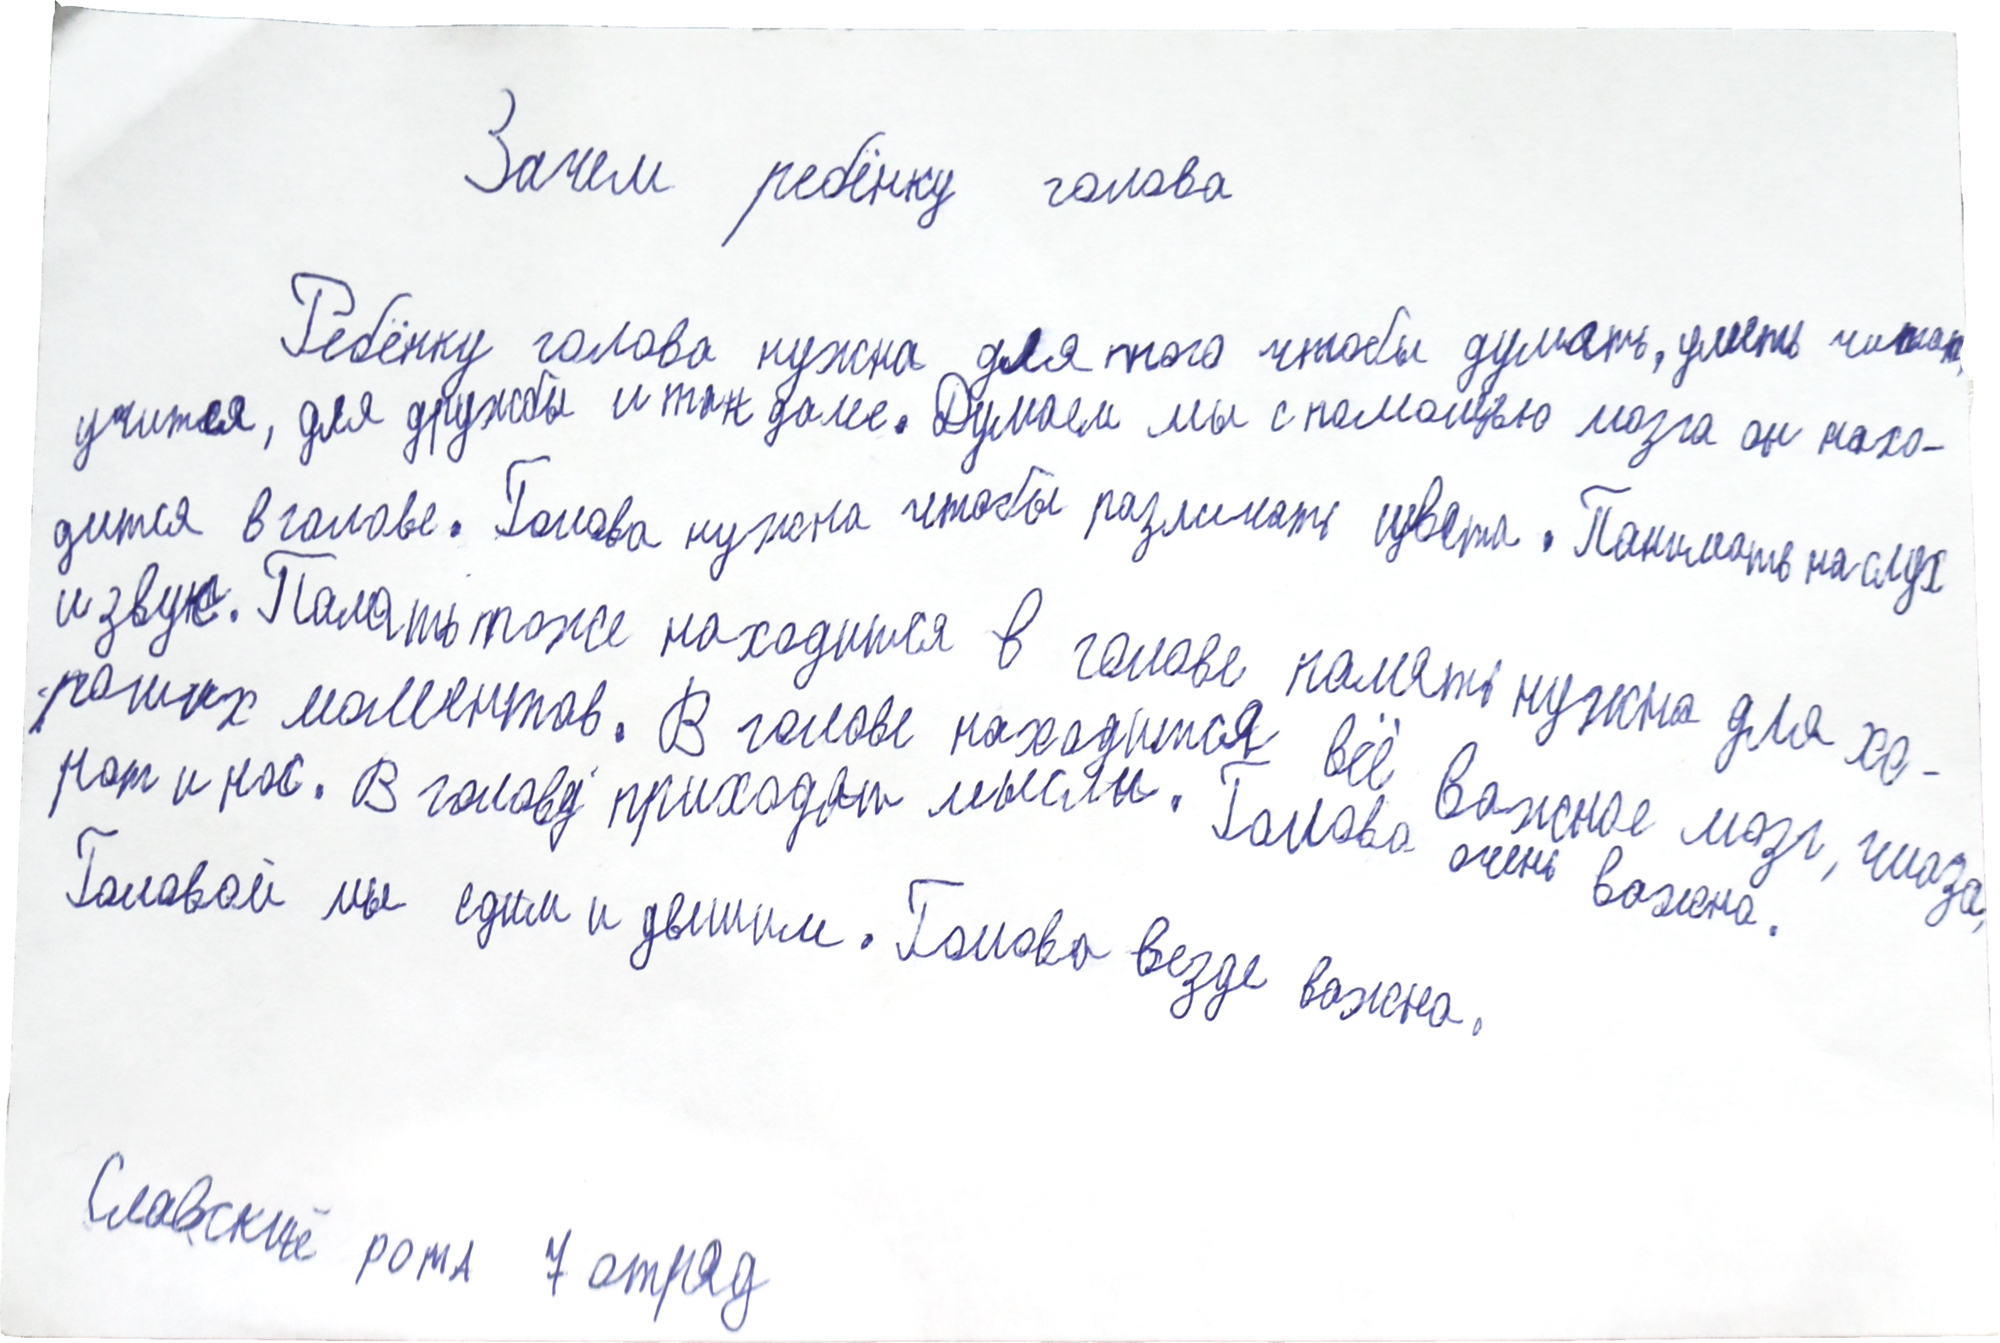 Зачем ребёнку голова
Ребёнку голова нужна для того чтобы думать, уметь читать,
учится, для дружбы и так дале. Думаем мы с помощью мозга он нахо-
дится в голове. Голова нужна чтобы различать цвета. Панимать на слух
и звук. Память тоже находится в голове память нужна для хо-
роших моментов. В голове находится всё важное мозг, глаза,
рот и нос. В голову приходят мысли. Голова очень важна.
Головой мы едим и дышим. Голова везде важна.
Славский рома 7 отряд